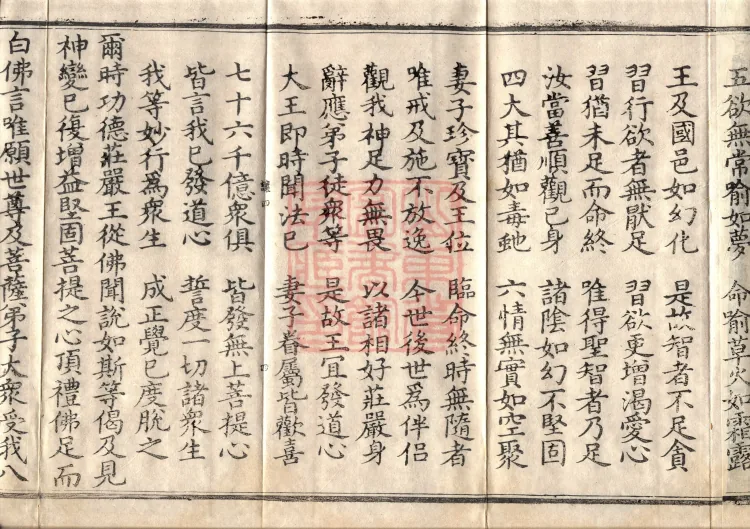 五欲無常喻如夢　命喻草火如霜露
王及國邑如幻化　是故智者不足貪
習行欲者無厭足　習欲更增渴愛心
習猶未足而命終　唯得聖智者乃足
汝當善順觀己身　諸陰如幻不堅固
四大其猶如毒虵　六情無實如空聚
妻子珍寶及王位　臨命終時無隨者
唯戒及施不放逸　今世後世為伴侶
觀我神足力無畏　以諸相好莊嚴身
辭應弟子徒衆等　是故王冝發道心
大王即時聞法已　妻子眷屬皆歡喜
七十六千億衆俱　皆發無上菩提心
皆言我已發道心　誓度一切諸衆生
我等妙行為衆生　成正覺已度脫之
爾時功德莊嚴王從佛聞說如斯等偈及見
神變已復增益堅固菩提之心頂禮佛足而
白佛言唯願世尊及菩薩弟子大衆受我八